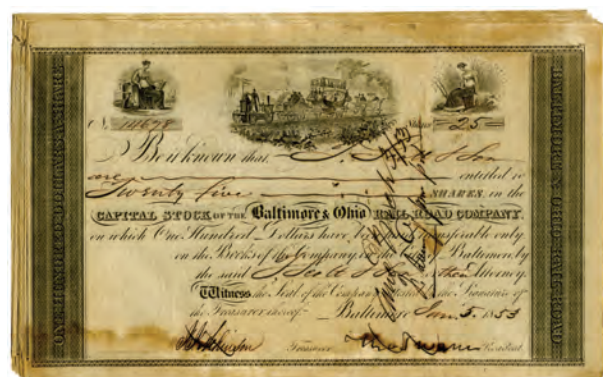 No. 14678 Shares 25
Be it known that J. Scott & Son
are entitled to
Twenty five SHARES, in the
CAPITAL STOCK OF THE Baltimore & Ohio RAIL ROAD COMPANY,
on which One Hundred Dollars have been paid transferable only
on the Books of the Company, in the City of Baltimore, by
the said J Scott & Son or their Attorney.
Witness the Seal of the Company attested by the Signature of
the Treasurer thereof. Baltimore Jan. 5. 1853
Treasurer President.
ONE HUNDRED DOLLARS A SHARE
BALTIMORE & OHIO RAIL ROAD